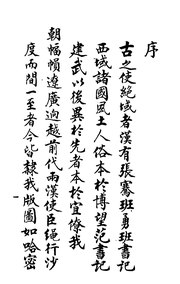 序
古之使絶域者漢有張騫班勇班書記
西域諸國風土人俗本於博望范書記
建武以後異於先者本於宜僚我
朝幅幀遼廣逈越前代而漢使臣繩行沙
度而間一至者今皆隸我版圖如哈密